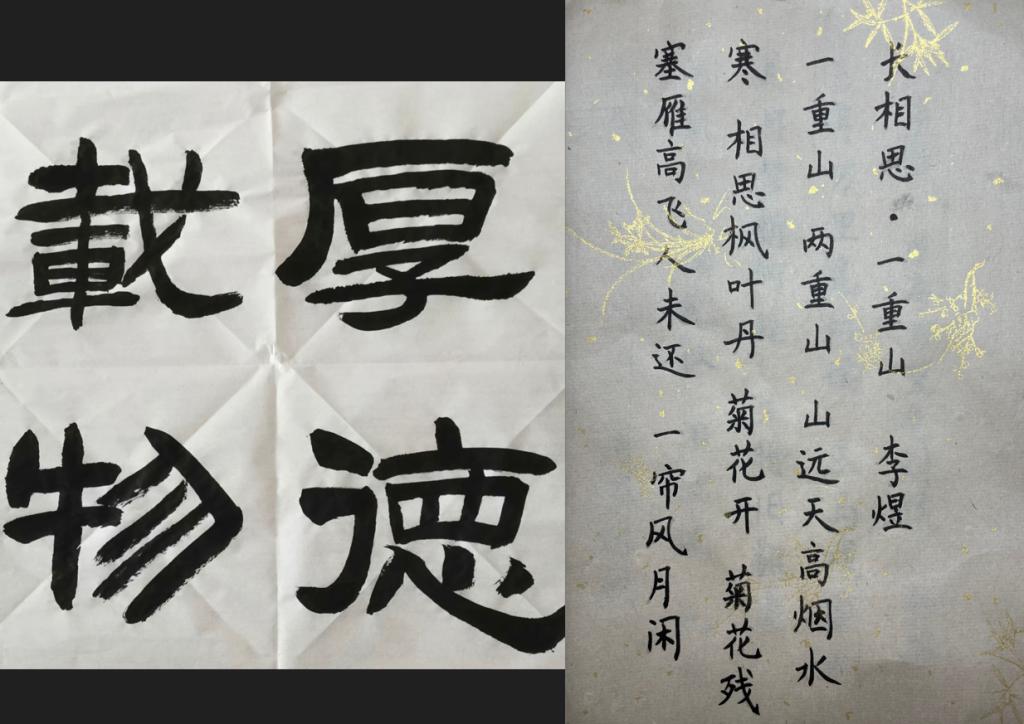 厚德
載物
长相思·一重山 李煜
一重山 两重山 山远天高烟水
寒 相思枫叶丹 菊花开 菊花残
塞雁高飞人未还 一帘风月闲